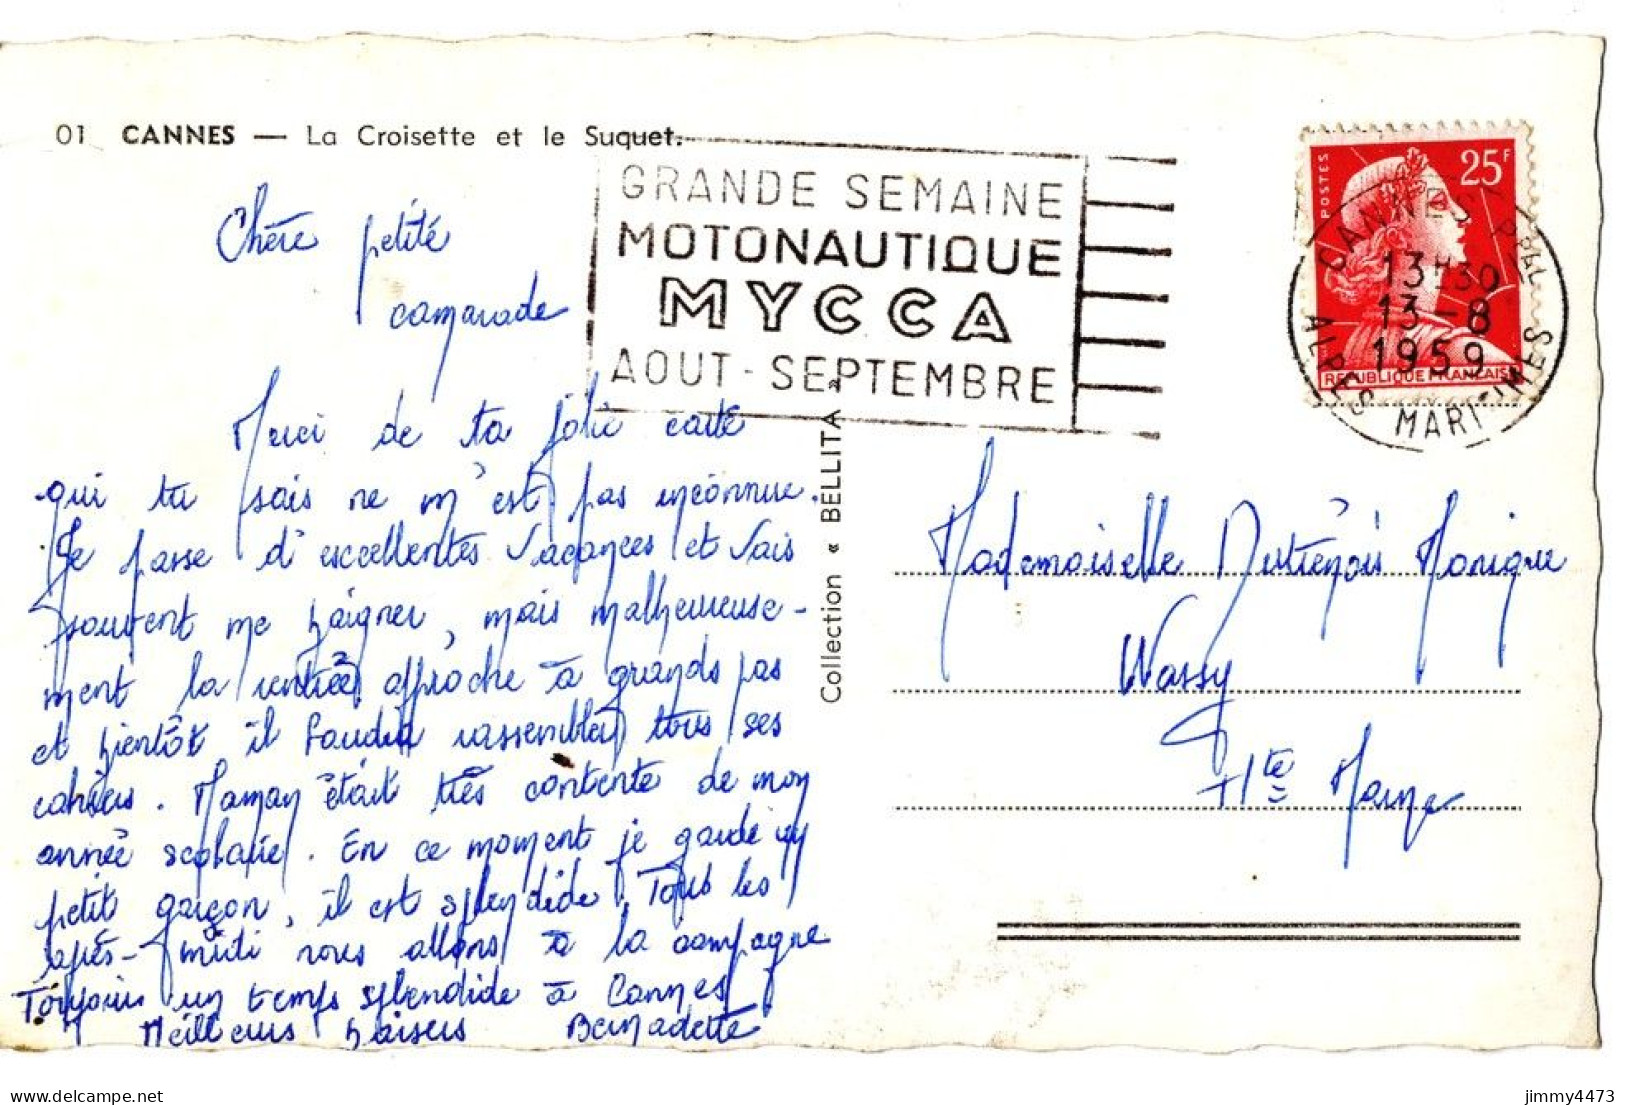 01 CANNES — La Croisette et le Suquet.
GRANDE SEMAINE
MOTONAUTIQUE
MYCCA
AOUT - SEPTEMBRE
POSTES
25F
RÉPUBLIQUE FRANÇAISE
CANNES PPAL
13H30
13-8
1959
ALPES MARITIMES
Chère petite
camarade
Merci de ta jolie carte
qui tu sais ne m'est pas inconnue.
Je passe d'excellentes vacances et vais
souvent me baigner, mais malheureuse-
ment la rentrée approche à grands pas
et bientôt il faudra rassembler tous ses
cahiers. Maman était très contente de mon
année scolaire. En ce moment je garde un
petit garçon, il est splendide. Tous les
après-midi nous allons à la campagne
Toujours un temps splendide à Cannes
Meilleurs baisers Bernadette
Collection « BELLITA »
Mademoiselle Monique
Wassy
Hte Marne
jimmy4473
delcampe.net